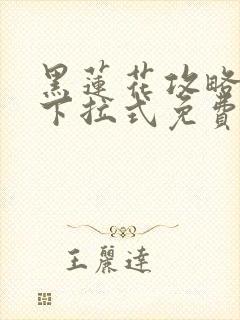 黑蓮花攻略
下拉式免費
王麗達